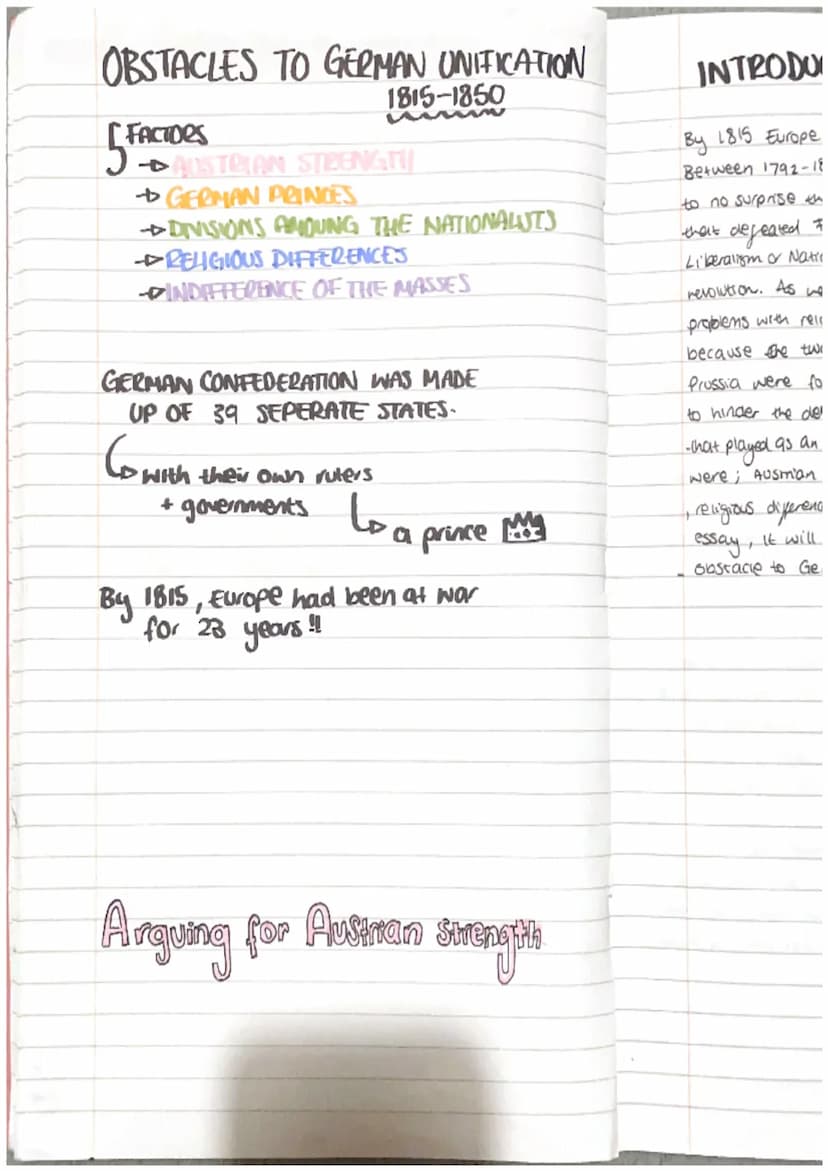 OBSTACLES TO GERMAN UNIFICATION
1815-1850
5 FACTORS
→ AUSTRIAN STRENGTH
→ GERMAN PRINCES
→ DIVISIONS AMOUNG THE NATIONALISTS
→ RELIGIOUS DIFFERENCES
→ INDIFFERENCE OF THE MASSES
GERMAN CONFEDERATION WAS MADE
UP OF 39 SEPERATE STATES.
with their own rulers
+ governments
a prince
By 1815, Europe had been at war
for 23 years!!
Arguing for Austrian Strength
INTRODU
By 1815 Europe
Between 1792-18
to no surprise th
that defeated F
Liberalism or Natio
revolution. As we
problems with reli
because the tw
Prussia were fo
to hinder the de
that played as an
were; Austrian
, religious differenc
essay, it will
obstacle to Ge